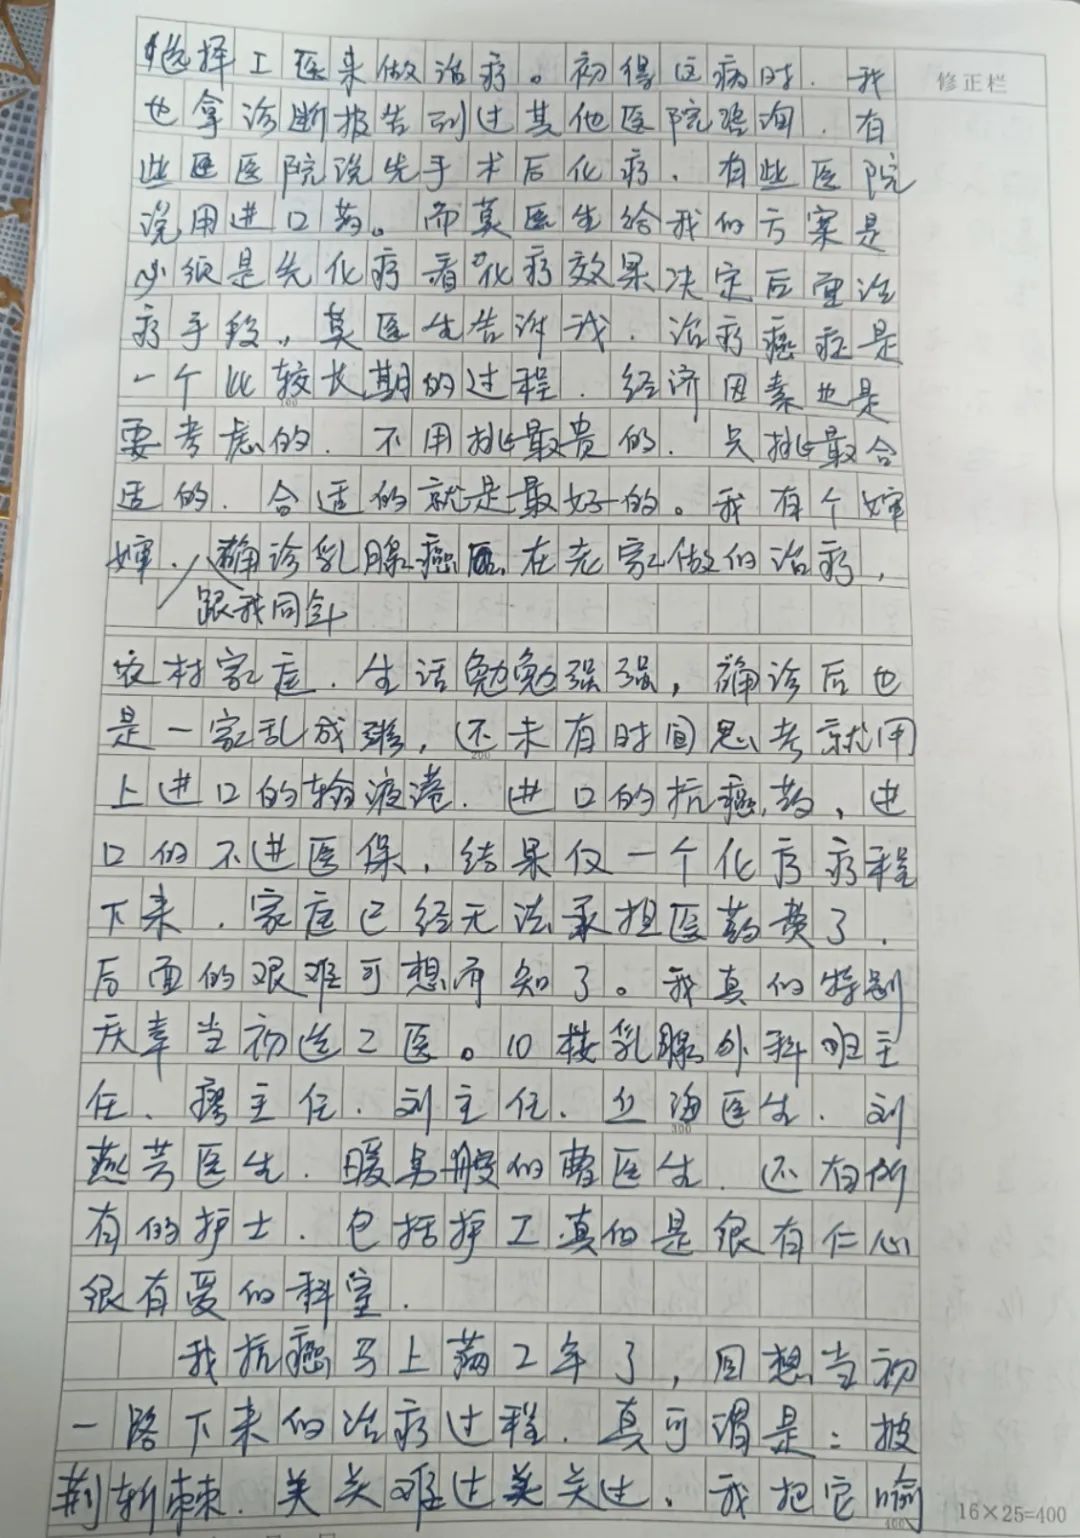 选择工医来做治疗。初得这病时．我
修正栏
也拿诊断报告到过其他医院咨询．有
些医医院说先手术后化疗．有些医院
说用进口药。而莫医生给我的方案是
必须是先化疗看化疗效果决定后面治
疗手段，莫医生告诉我．治疗癌症是
一个比较长期的过程．经济因素也是
100
要考虑的．不用挑最贵的．只挑最合
适的．合适的就是最好的。我有个婶
婶．确诊乳腺癌，在老家做的治疗，
跟我同年
农村家庭．生活勉勉强强，确诊后也
是一家乱成，还未有时间思考就用
200
上进口的输液港．进口的抗癌药，进
口的不进医保，结果仅一个化疗疗程
下来．家庭已经无法承担医药费了．
后面的艰难可想而知了。我真的特别
庆幸当初选工医。10楼乳腺外科主
任．廖主任．刘主任．丘海医生．刘
300
燕芳医生．暖男般的曹医生．还有所
有的护士．包括护工．真的是很有仁心
很有爱的科室．
我抗癌马上满2年了，回想当初
一路下来的治疗过程．真可谓是：披
荆斩棘．关关难过关关过．我把它喻
400
16×25=400